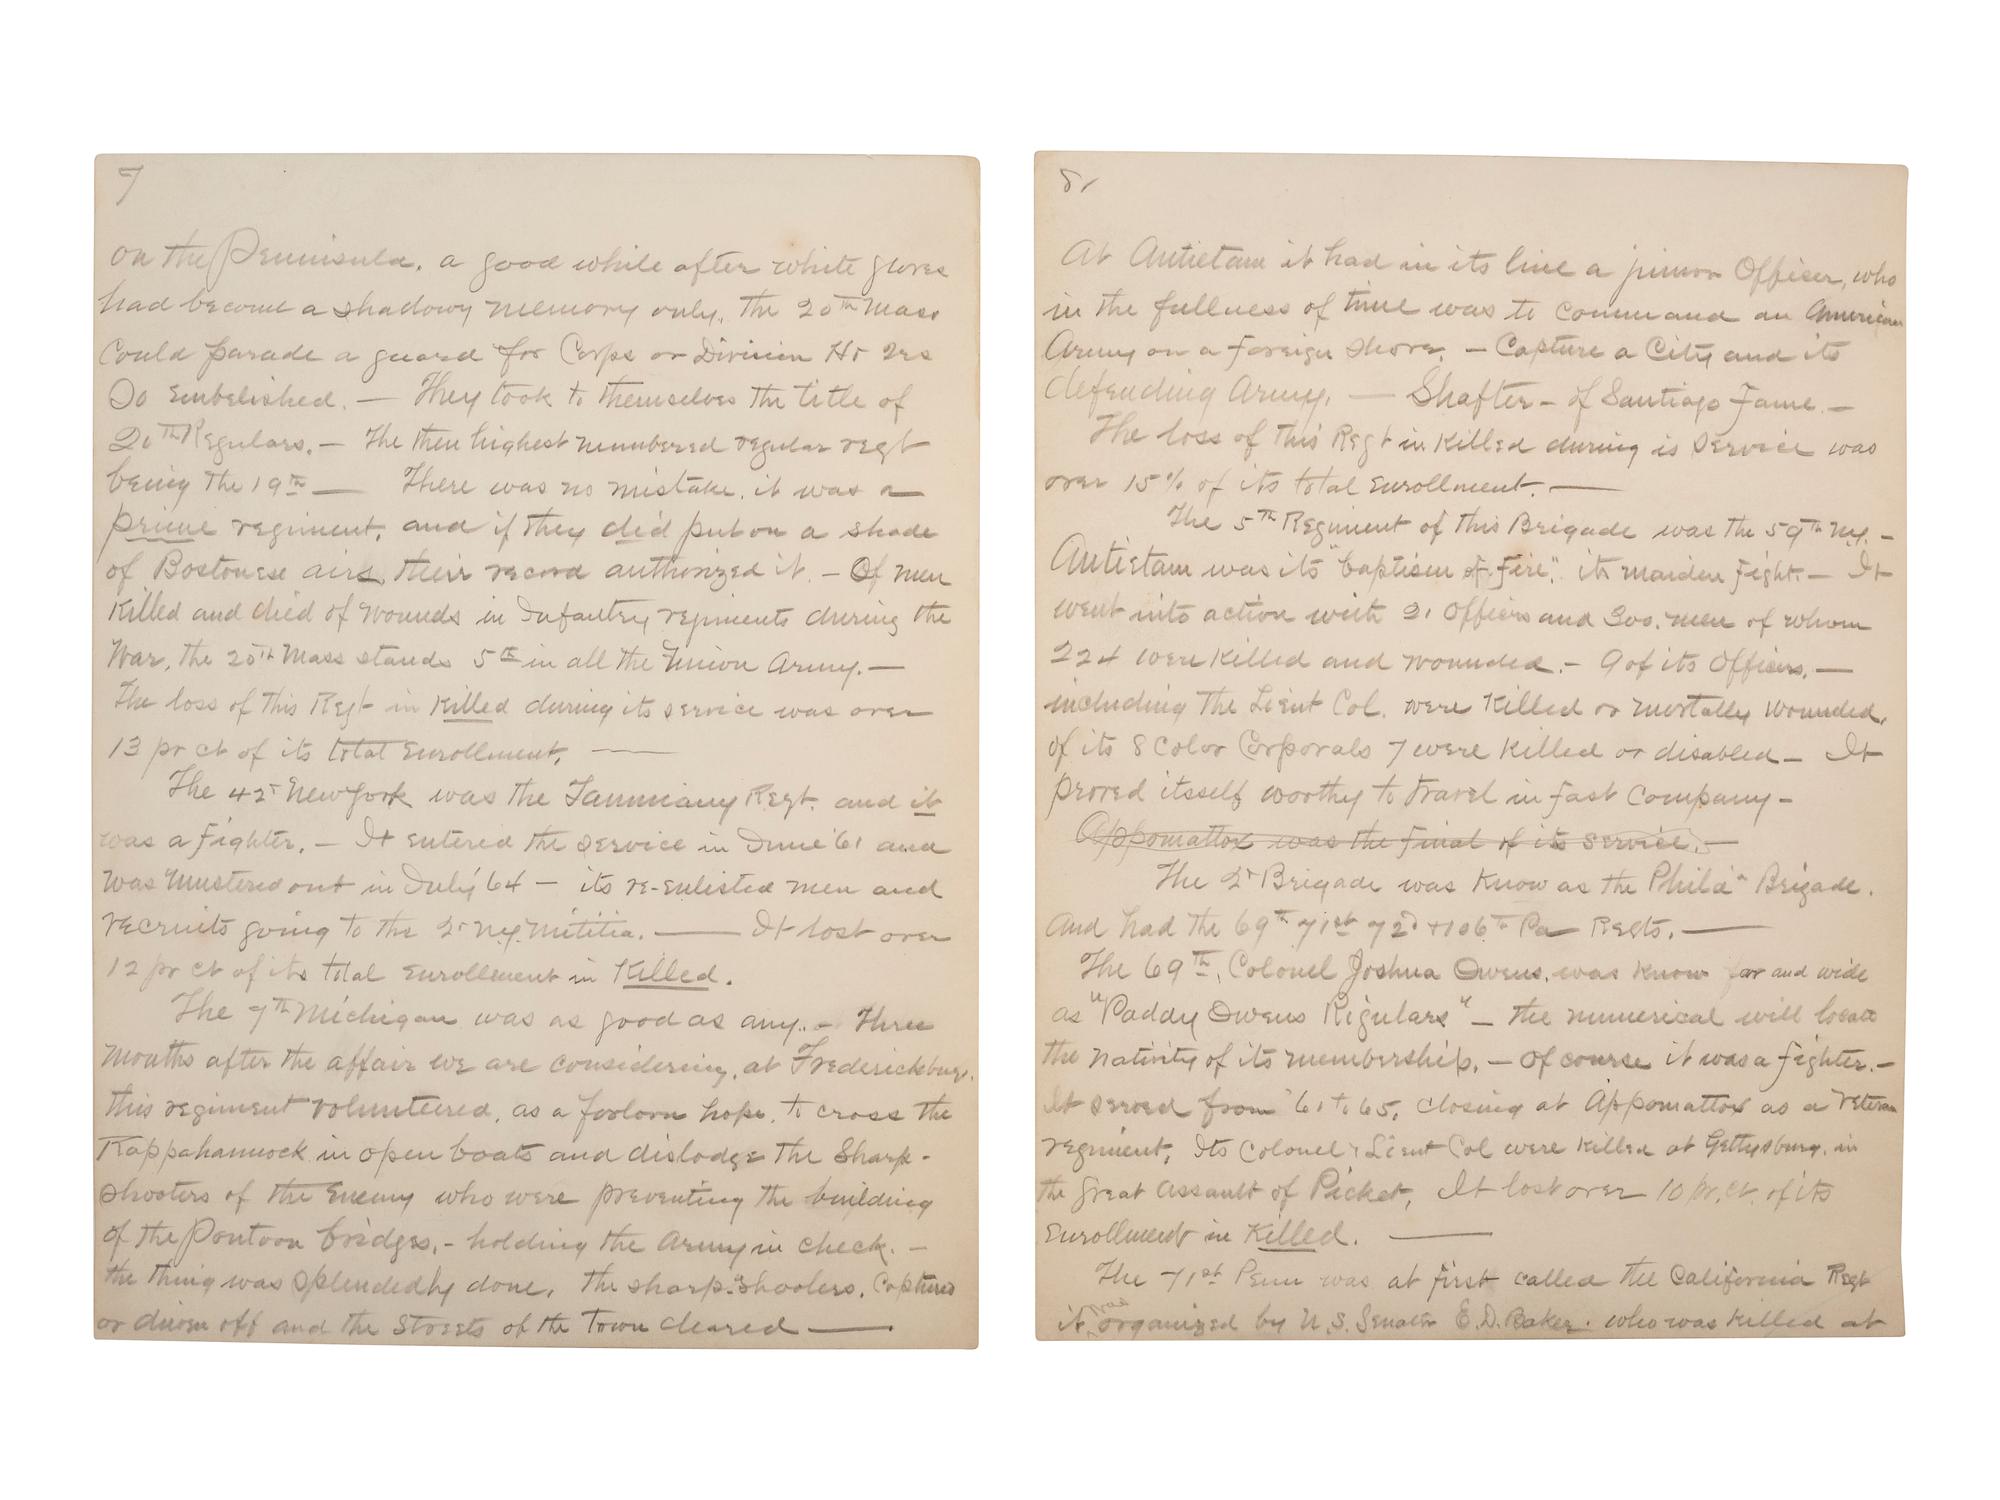 7
on the Peninsula. a good while after white gloves
had become a shadowy memory only. The 20th Mass
Could parade a guard for Corps or Division Hd Qrs
So Embelished. — They took to themselves the title of
20th Regulars. — The then highest numbered regular regt
being the 19th — There was no mistake. it was a
prime regiment, and if they did put on a shade
of Bostonese airs, their record authorized it. — Of men
Killed and died of wounds in Infantry regiments during the
War, the 20th Mass stands 5th in all the Union Army. —
The loss of this Regt in Killed during its service was over
13 pr ct of its total Enrollment, —
The 42d New York was the Tammany Regt. and it
was a fighter. — It entered the service in June '61 and
was Mustered out in July '64 — its re-enlisted men and
recruits going to the 2d N.Y. Militia. — It lost over
12 pr ct of its total Enrollment in Killed.
The 7th Michigan was as good as any. — Three
Months after the affair we are considering, at Fredericksburg.
this regiment volunteered, as a forlorn hope, to cross the
Rappahannock in open boats and dislodge the Sharp-
shooters of the Enemy who were preventing the building
of the Pontoon bridges, — holding the Army in check. —
the thing was splendedly done, the sharp-shooters, Captured
or driven off and the Streets of the Town cleared —
8
At Antietam it had in its line a junior Officer, who
in the fullness of time was to command an American
Army on a foreign shore. — Capture a City and its
defending Army. — Shafter — of Santiago Fame. —
The loss of this Regt in Killed during is service was
over 15% of its total Enrollment. —
The 5th Regiment of this Brigade was the 59th N.Y. —
Antietam was its "baptism of fire". its maiden fight. — It
went into action with 21 Officers and 300. men of whom
224 were Killed and wounded. — 9 of its Officers, —
including the Lieut Col. were Killed or mortally wounded,
of its 8 Color Corporals 7 were Killed or disabled — It
proved itsself worthy to travel in fast company —
Appomattox was the final of its service. —
The 2d Brigade was Know as the Phila Brigade.
And had the 69th 71st 72d + 106th Pa Regts. —
The 69th, Colonel Joshua Owens, was Know far and wide
as "Paddy Owens Regulars" — the numerical will locate
the nativity of its membership. — Of course it was a fighter. —
It served from '61 to 65, closing at Appomattox as a Veteran
regiment, Its Colonel & Lieut Col were Killed at Gettysburg, in
the great Assault of Picket, It lost over 10 pr. ct. of its
Enrollment in Killed. —
The 71st Penn was at first called the California Regt
it was organized by U.S. Senator E.D. Baker. who was killed at